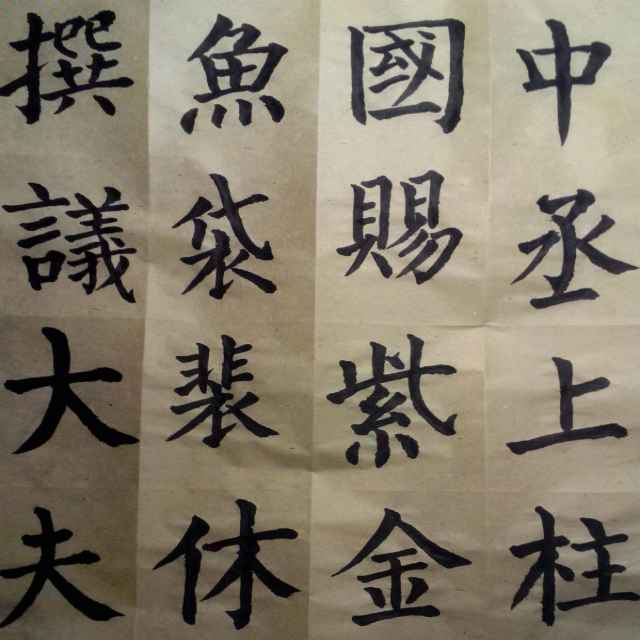 中丞上柱
國賜紫金
魚袋裴休
撰議大夫